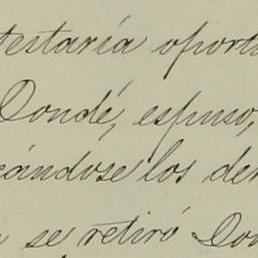 testaría oport
Dondé, espuso,
cándose los der
se retiró Don